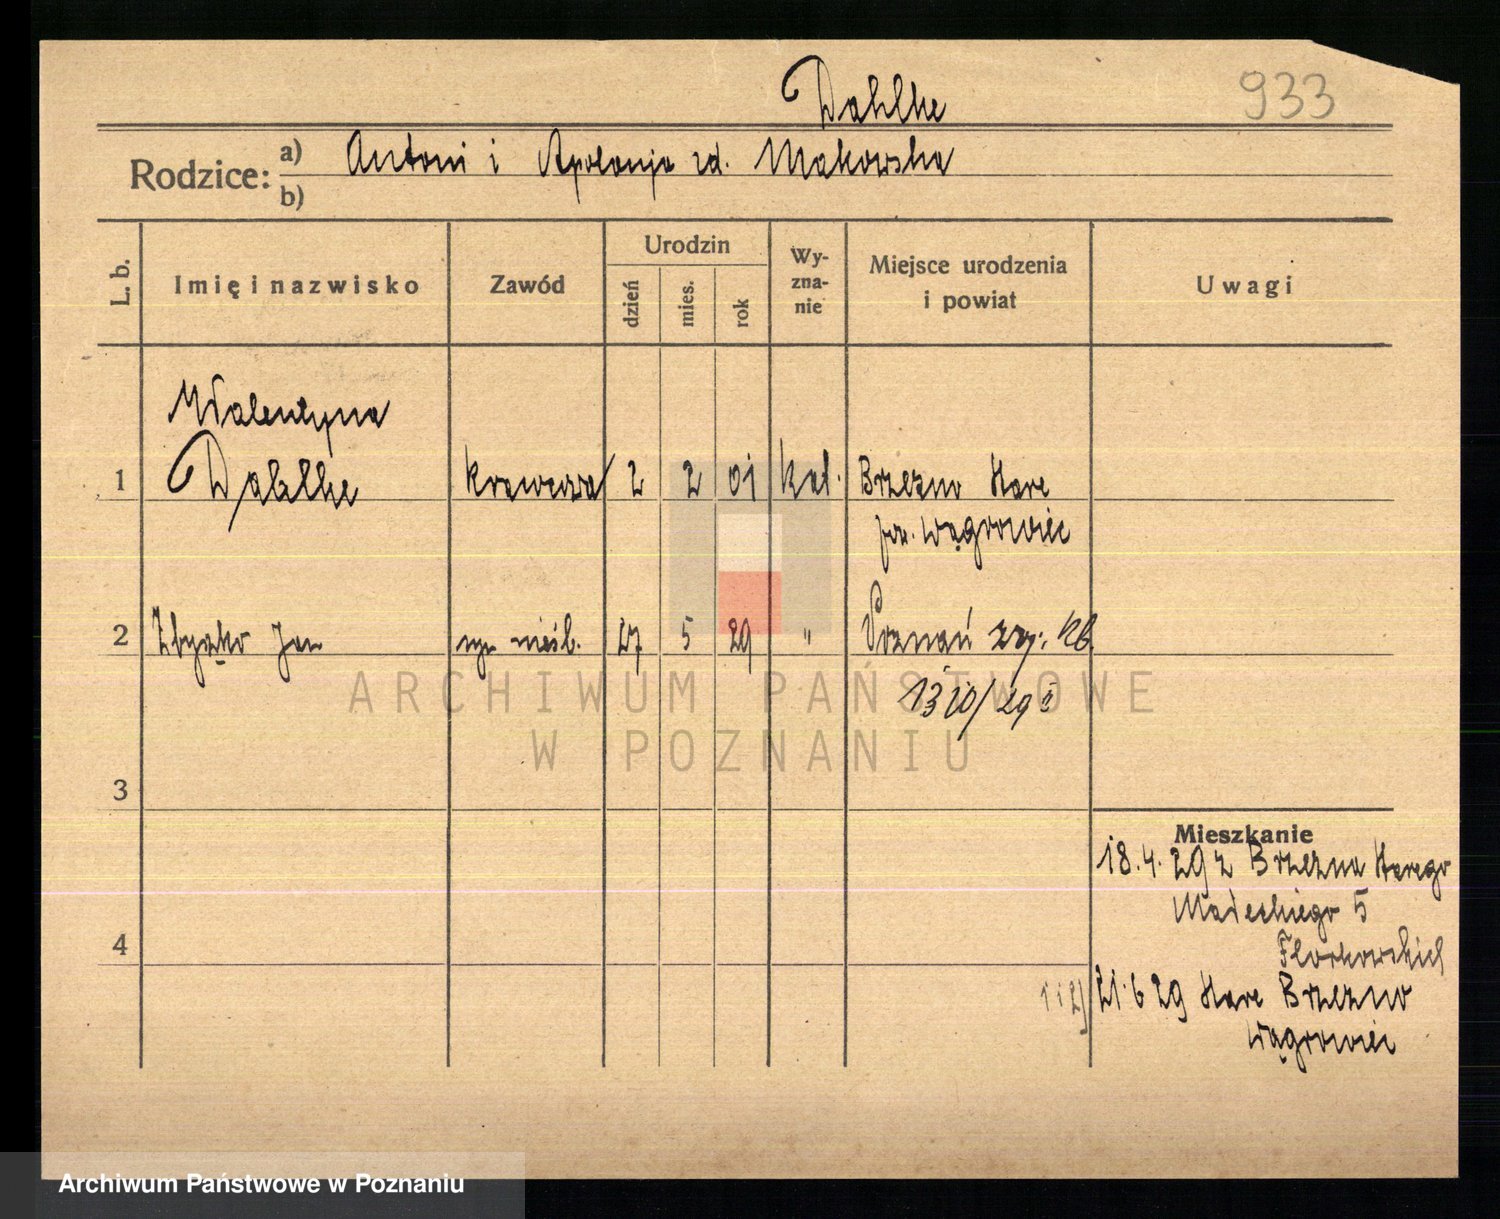 Dahlke
933
Rodzice: a) Antoni i Apolonja zd. Makowska
b)
L. b. Imię i nazwisko Zawód Urodzin dzień mies. rok Wy-zna-nie Miejsce urodzenia i powiat Uwagi
Walentyna
1 Dahlke krawcowa 2 2 01 kat. Brzezno Stare
pow. Wągrowiec
2 Jan syn nieśl. 27 5 29 " Poznań
3
4
Mieszkanie
18.4.29 z Brzezna Starego
5
Florkowskich
1 i 2) 21.6 29 Stare Brzezno
Wągrowiec
ARCHIWUM PAŃSTWOWE
W POZNANIU
Archiwum Państwowe w Poznaniu